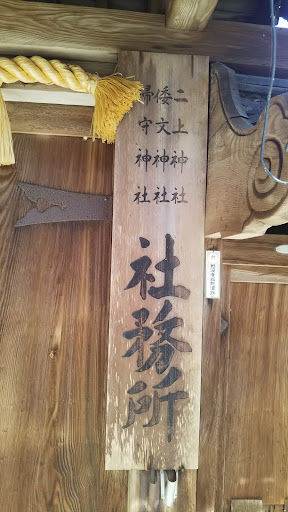 二上神社
倭文神社
掃守神社
社務所